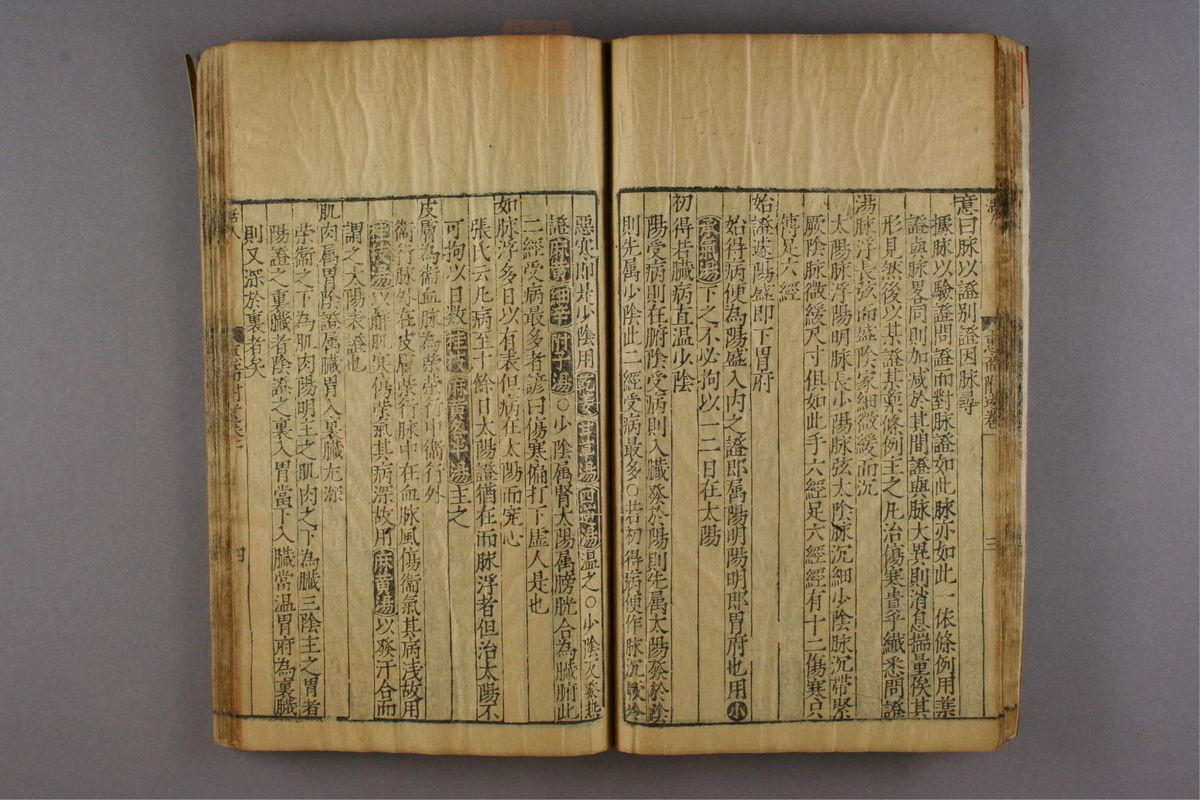 意曰脉以證別證因脉尋
據脉以驗證問證而對脉證如此脉亦如此一依條例用藥
證與脉畧同則加減於其間證與脉大異則消息揣量俟其
形見然後以某證某藥條例主之凡治傷寒貴乎纎悉問證
湯脉浮長弦而盛陰家細微緩而沉
太陽脉浮陽明脉長少陽脉弦太陰脉沉細少陰脉沉帶緊
厥陰脉微緩尺寸俱如此手六經足六經經有十二傷寒只
傳足六經
始證遂陽盛即下胃府
始得病便為陽盛入内之證即属陽明陽明即胃府也用小
承氣湯下之不必拘以一二日在太陽
初得若臟病直温少陰
陽受病則在腑陰受病則入臟發於陽則先属太陽發於陰
則先属少陰此二經受病最多○若初得病便作脉沉
惡寒即是少陰用乾姜甘草湯四逆湯温之○少陰反發熱
證麻黄細辛附子湯○少陰属腎太陽属膀胱合為臟腑此
二經受病最多者諺曰傷寒偏打下虚人是也
如脉浮多日以有表但病在太陽而究心
張氏云凡病至十餘日太陽證猶在而脉浮者但治太陽不
可拘以日数桂枝麻黄各半湯主之
皮膚為衛血脉為榮榮行中衛行外
衛行脉外在皮膚榮行脉中在血脉風傷衛氣其病浅故用
桂枝湯以解肌寒傷榮氣其病深故用麻黄湯以發汗合而
謂之太陽表證也
肌肉属胃陰證属臟胃入裏臟尤深
榮衛之下為肌肉陽明主之肌肉之下為臟三陰主之胃者
陽證之裏臟者陰證之裏入胃當下入臟當温胃府為裏臟
則又深於裏者矣
活人
四
三